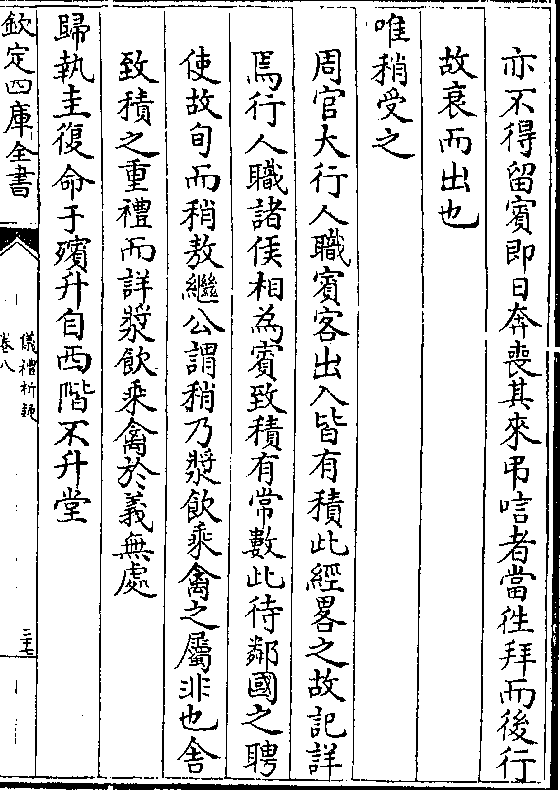 亦不得留賓即日奔喪其來弔唁者當徃拜而後行
故衰而出也
唯稍受之
周官大行人職賓客出入皆有積此經畧之故記詳
焉行人職諸侯相為賓致積有常數此待鄰國之聘
使故旬而稍敖繼公謂稍乃漿飲乘禽之屬非也舍
致積之重禮而詳漿飲乘禽於義無處
歸執圭復命于殯升自西階不升堂
欽定四庫全書
儀禮析疑
卷八
三十七